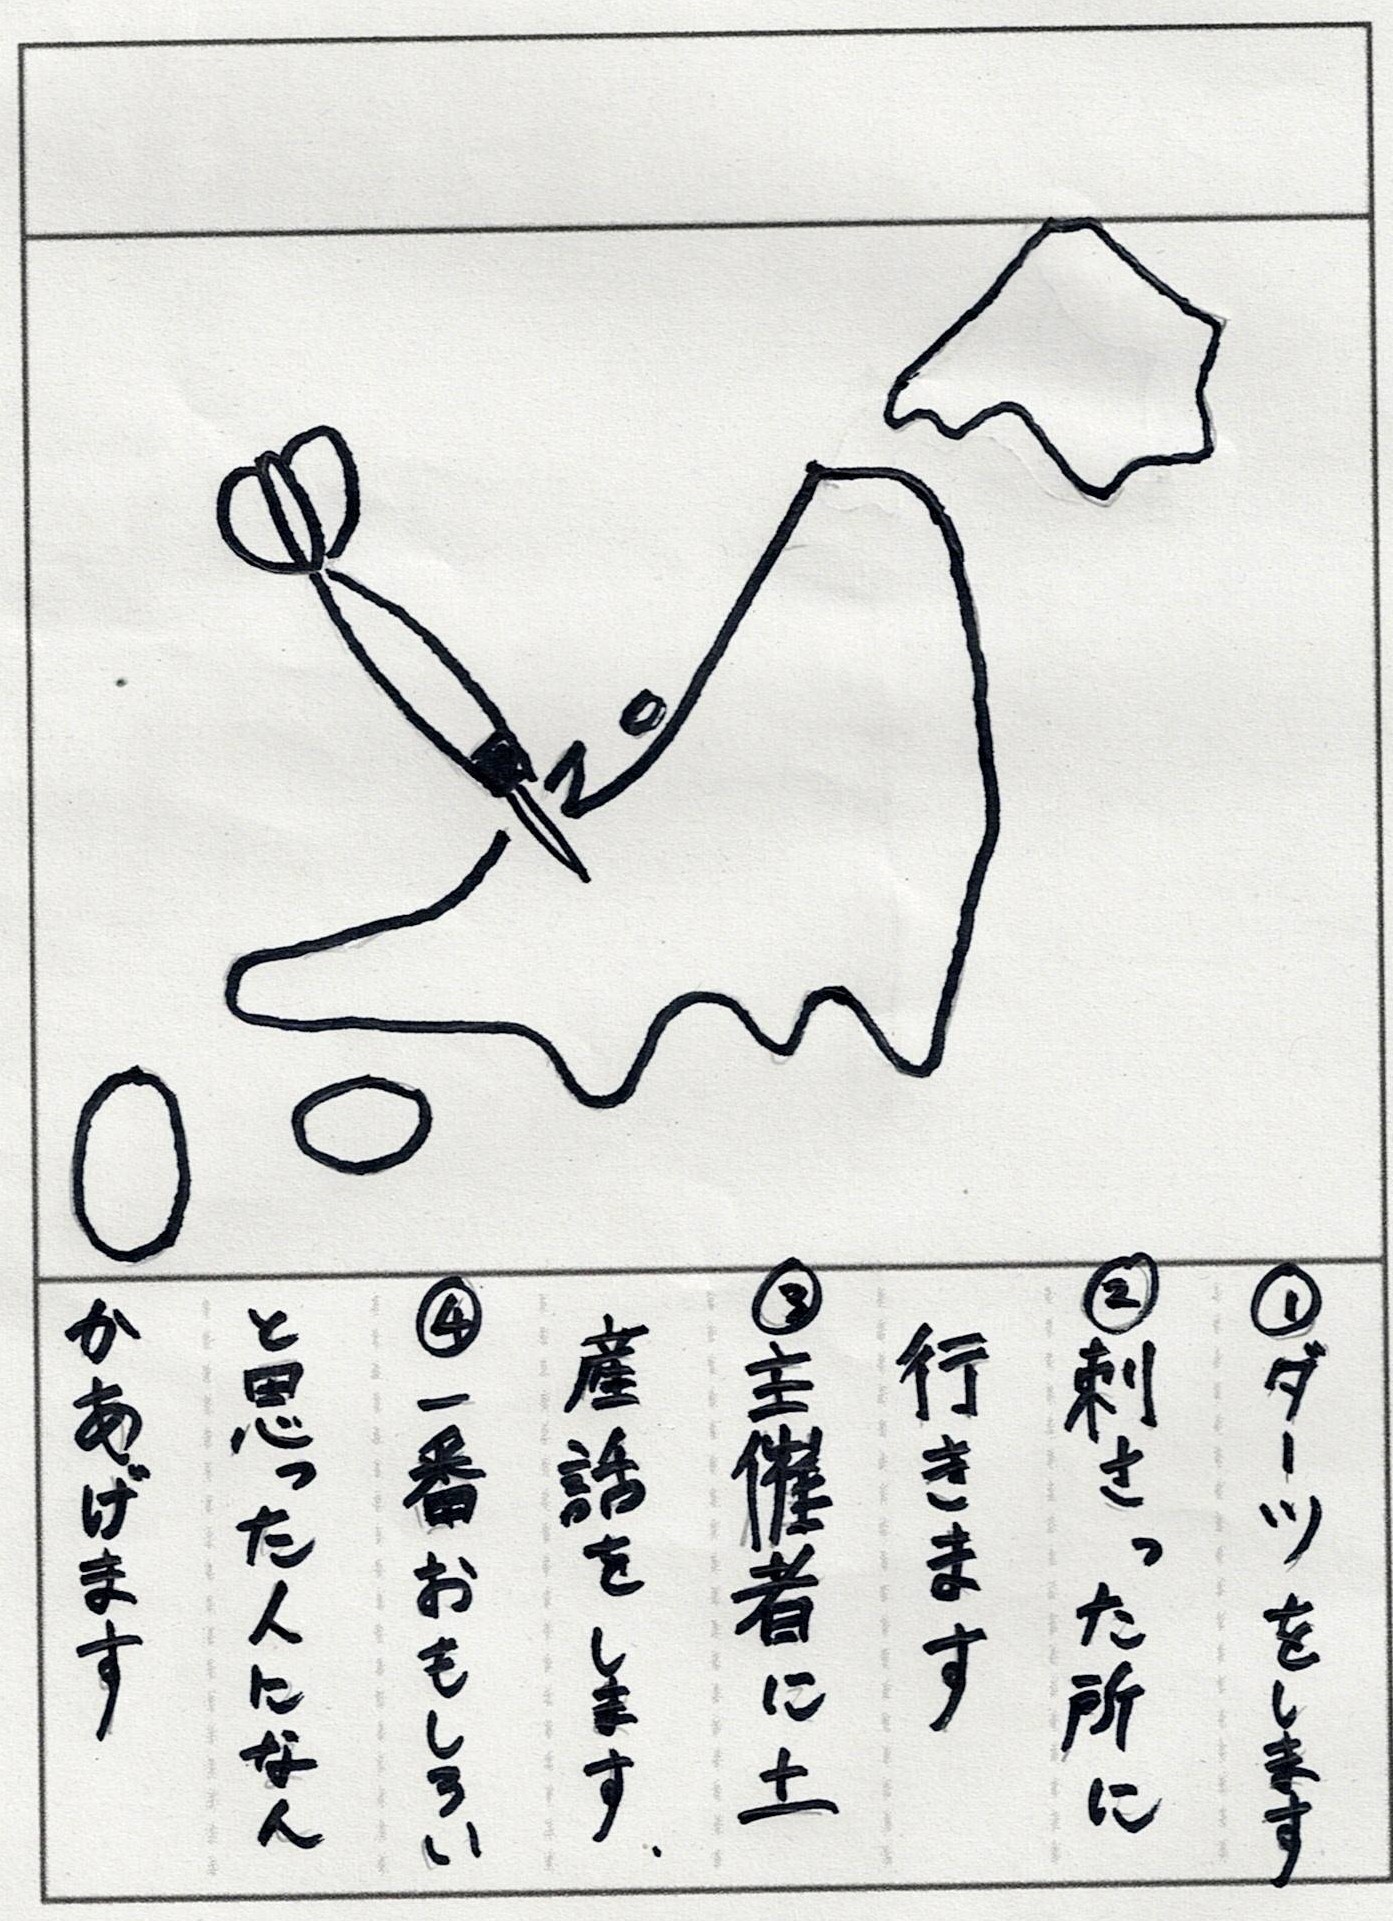 ①ダーツをします
②刺さった所に
行きます
③主催者に土
産話をします
④一番おもしろい
と思った人になん
かあげます